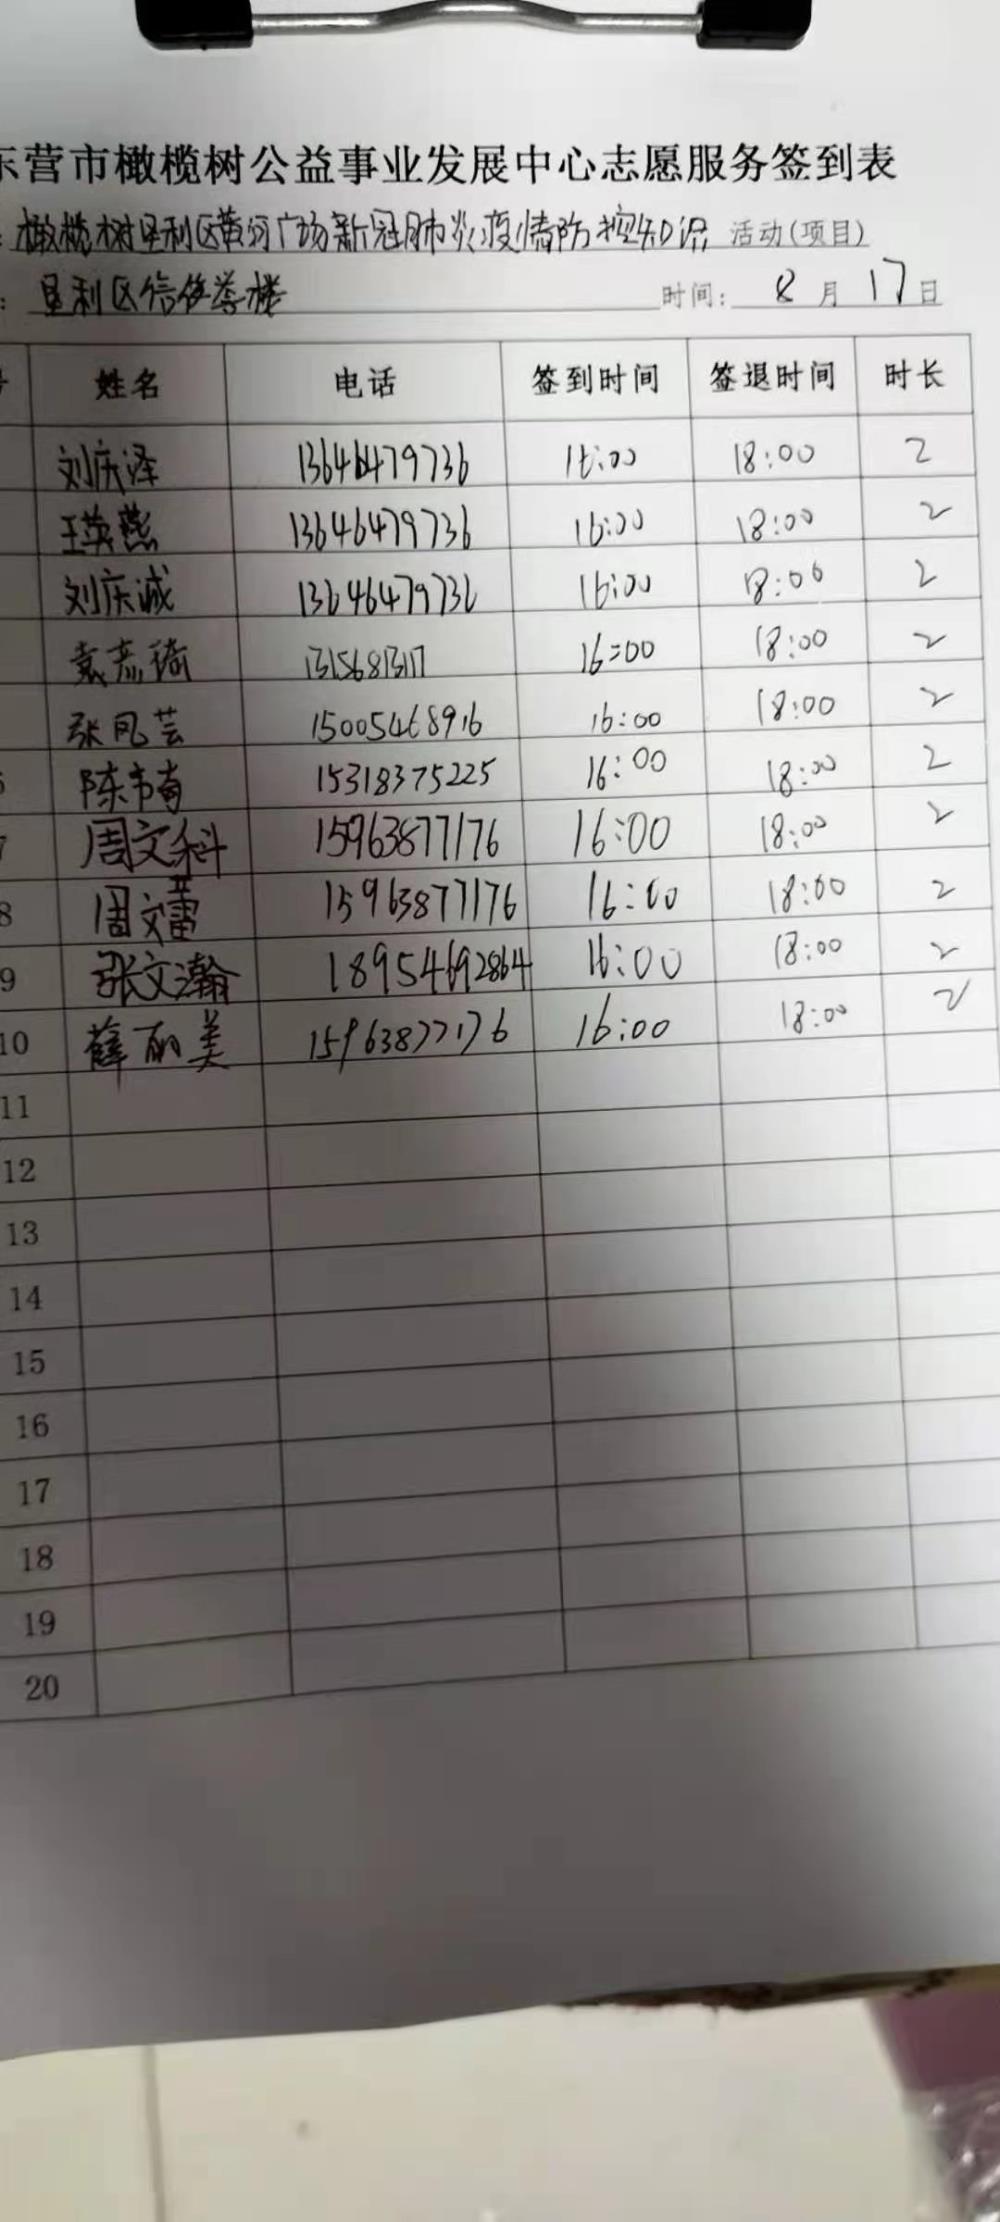 东营市橄榄树公益事业发展中心志愿服务签到表
: 橄榄树垦利区黄河广场新冠肺炎疫情防控知识 活动(项目)
: 垦利区信誉楼 时间: 8月17日
号 姓名 电话 签到时间 签退时间 时长
刘庆泽 13646479736 16:00 18:00 2
王英燕 13646479736 16:00 18:00 2
刘庆诚 13646479736 16:00 18:00 2
袁彦琦 16:00 18:00 2
张凤芸 15005468916 16:00 18:00 2
6 陈韦 15318375225 16:00 18:00 2
7 周文科 15963877176 16:00 18:00 2
8 周文蕾 15963877176 16:00 18:00 2
9 张文瀚 18954692864 16:00 18:00 2
10 薛丽美 15963877176 16:00 18:00 2
11
12
13
14
15
16
17
18
19
20